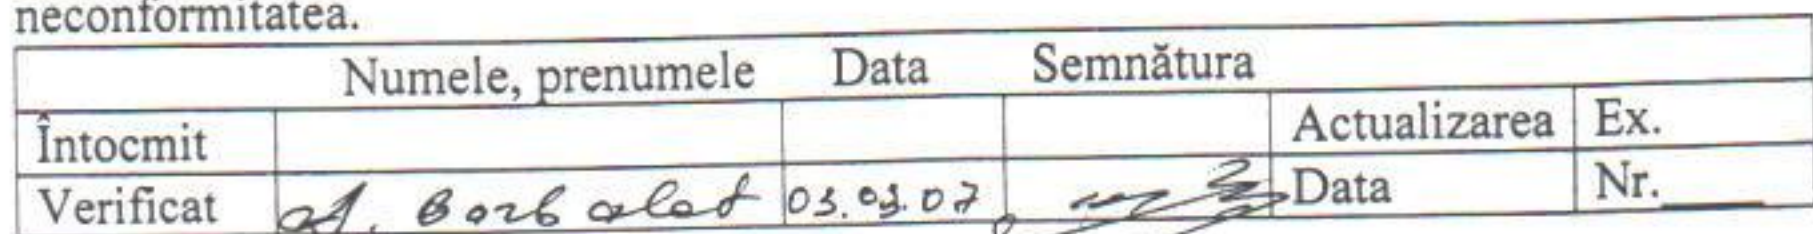 neconformitatea.
Numele, prenumele Data Semnătura
Întocmit Actualizarea Ex.
Verificat A. Borbalat 03.03.07 Data Nr.____